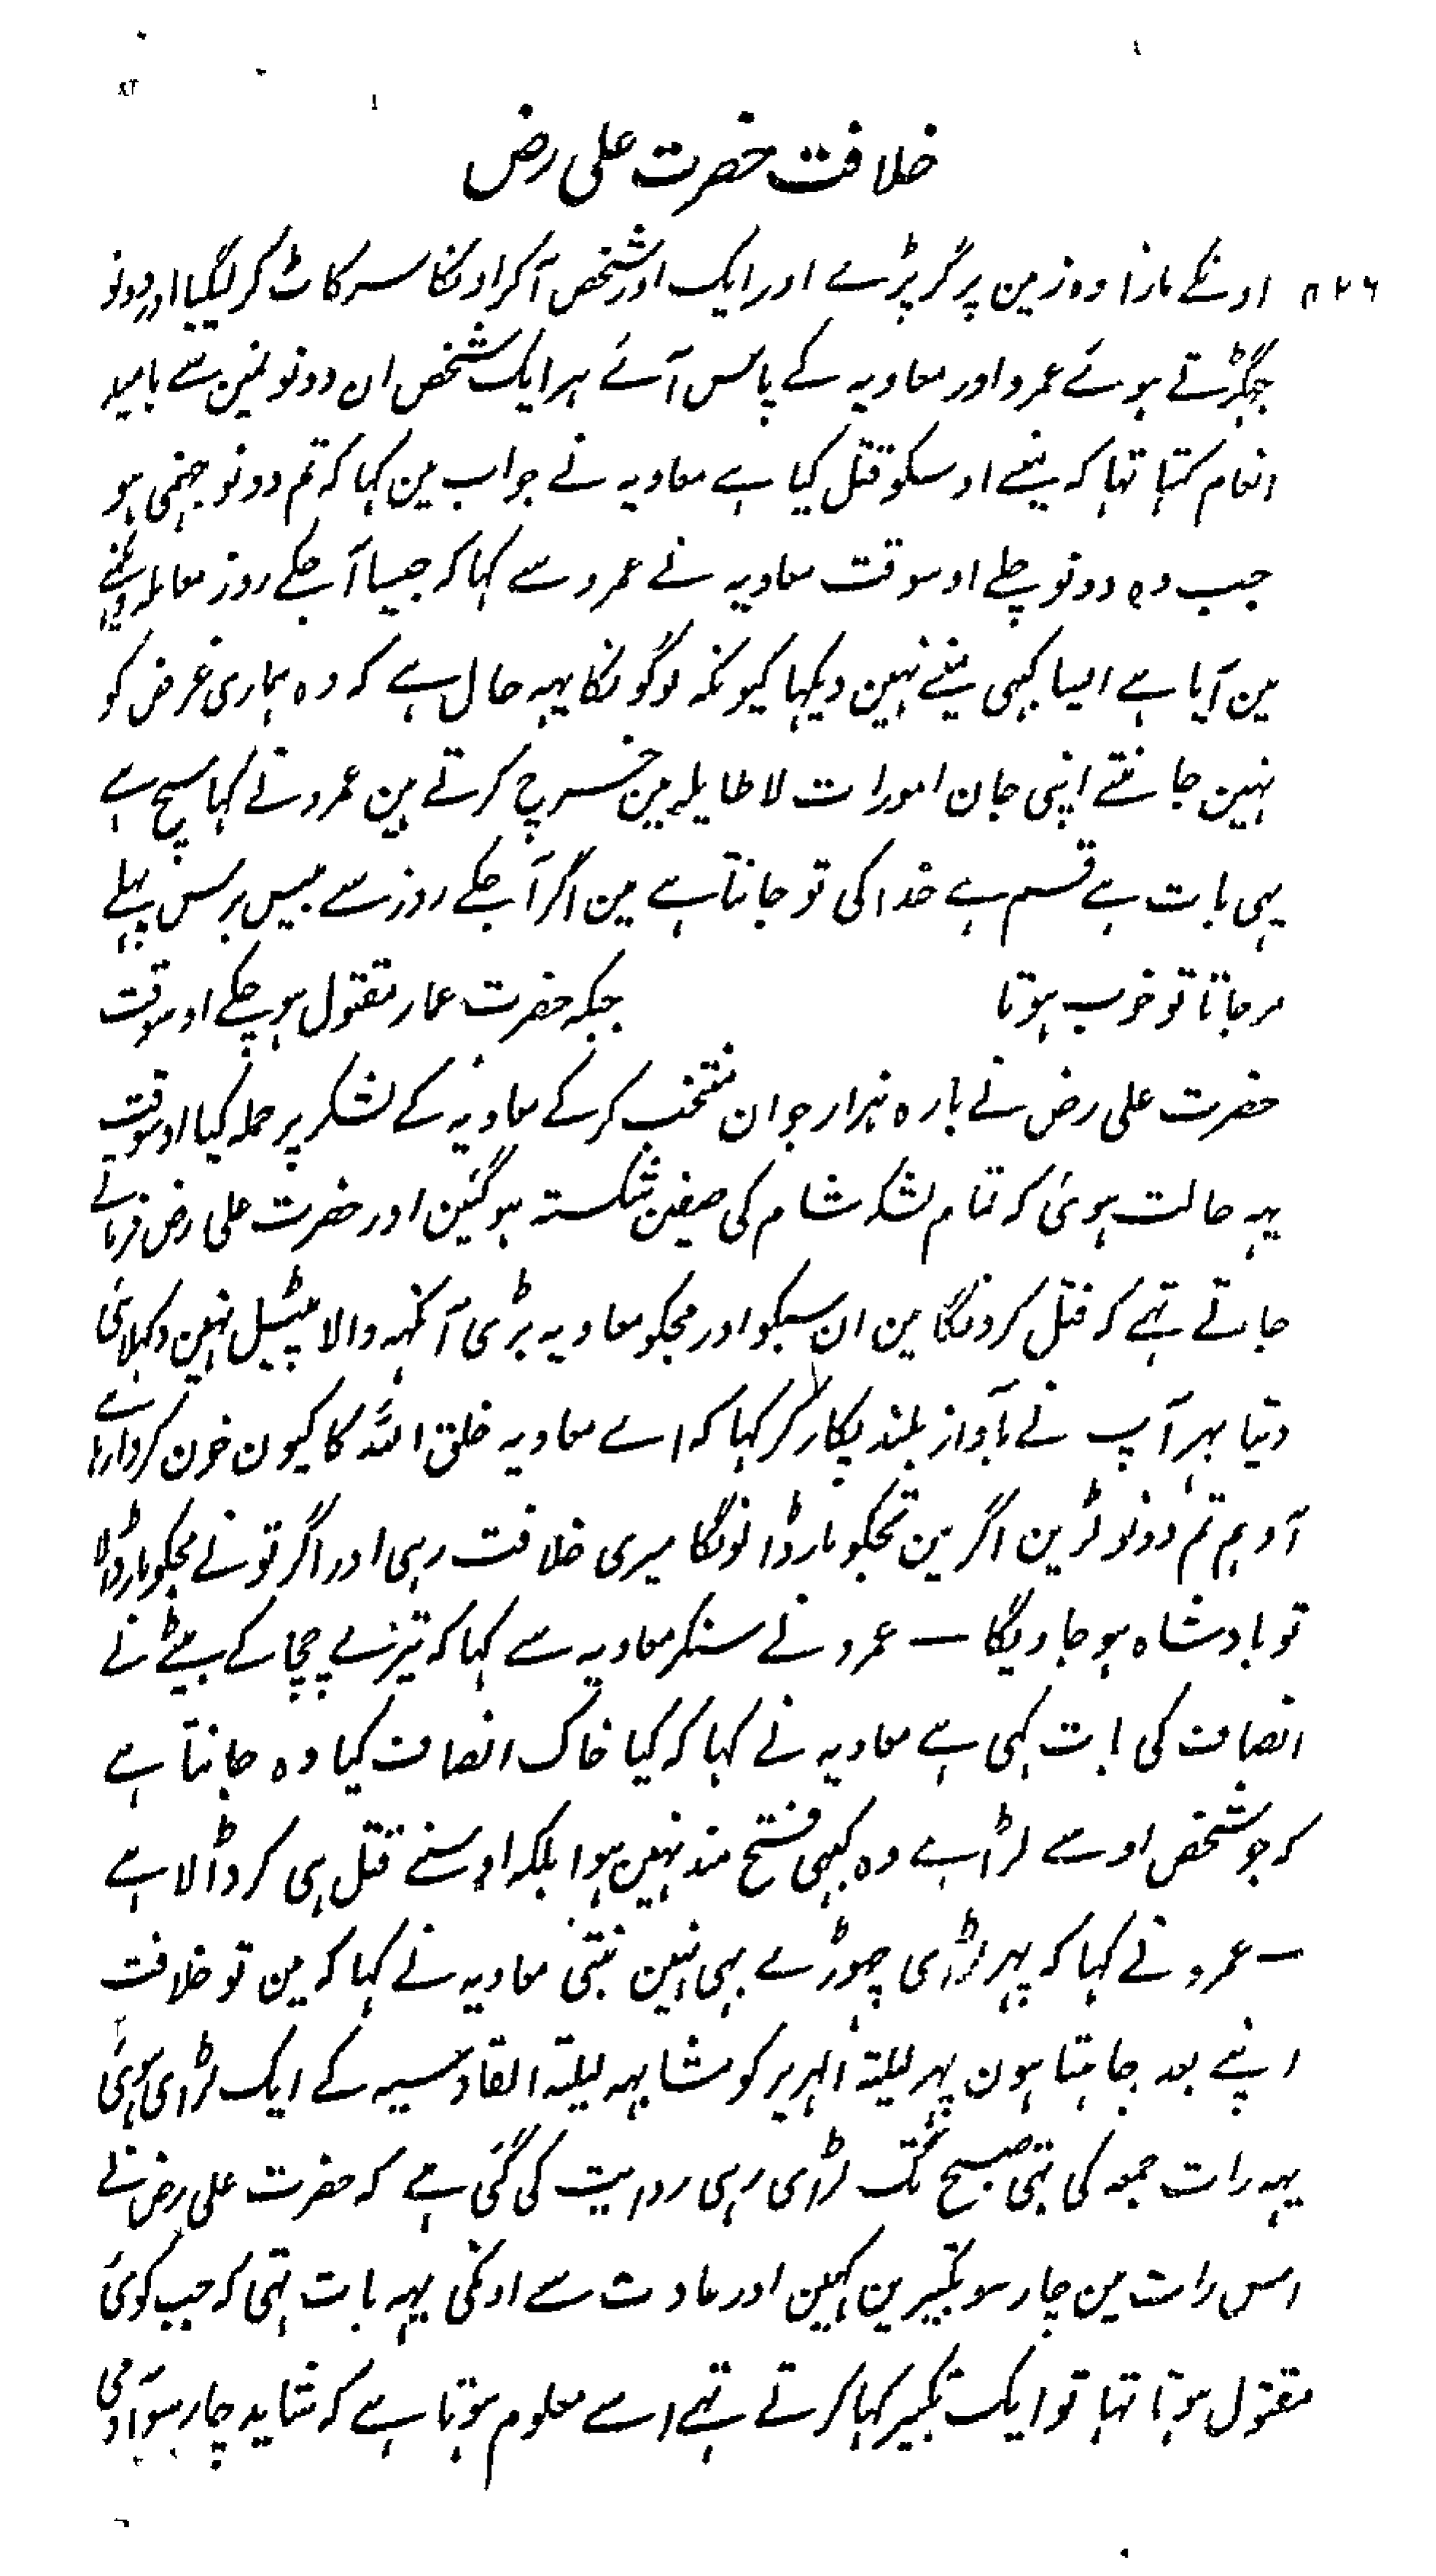 خلافت حضرت علی رض
اونکے مارا وہ زمین پر گر پڑے اور ایک اور شخص آکر اونکا سر کاٹ کر لیگیا اور دونو
جہگڑتے ہوئے عمرو اور معاویہ کے پاس آئے ہر ایک شخص ان دونو نمین سے بامید
انعام کہتا تہا کہ مینے اوسکو قتل کیا ہے معاویہ نے جواب مین کہا کہ تم دونو جہنمی ہو
جب وہ دونو چلے اوسوقت معاویہ نے عمرو سے کہا کہ جیسا آجکے روز معاملہ
مین آیا ہے ایسا کبہی مینے نہین دیکہا کیونکہ لوگونکا یہہ حال ہے کہ وہ ہماری غرض کو
نہین جانتے اپنی جان امورات لاطایلہ مین خرچ کرتے ہین عمرو نے کہا سچ ہے
یہی بات ہے قسم ہے خدا کی تو جانتا ہے مین اگر آجکے روز سے بیس برس پہلے
مرجاتا تو خوب ہوتا جبکہ حضرت عمار مقتول ہو چکے اوسوقت
حضرت علی رض نے بارہ ہزار جوان منتخب کرکے معاویہ کے لشکر پر حملہ کیا اوسوقت
یہہ حالت ہوئی کہ تمام لشکر شام کی صفین شکستہ ہو گئین اور حضرت علی رض فرماتے
جاتے تہے کہ قتل کرونگا مین ان سبکو اور مجکو معاویہ بڑی آنکہہ والا مٹیل نہین دکہلائی
دیتا پہر آپ نے بآواز بلند پکار کر کہا کہ اے معاویہ خلق اللہ کا کیون خون کروا رہا ہے
آو ہم تم دونو لڑین اگر مین تجکو مار ڈالونگا میری خلافت رہی اور اگر تو نے مجکو مار ڈالا
تو بادشاہ ہو جاویگا — عمرو نے سنکر معاویہ سے کہا کہ تیرے چچا کے بیٹے نے
انصاف کی بات کہی ہے معاویہ نے کہا کہ کیا خاک انصاف کیا وہ جانتا ہے
کہ جو شخص اوسے لڑا ہے وہ کبہی فتح مند نہین ہوا بلکہ اوسنے قتل ہی کر ڈالا ہے
— عمرو نے کہا کہ پہر لڑای چہوڑے بہی نہین بنتی معاویہ نے کہا کہ مین تو خلافت
اپنے بعد چاہتا ہون پہر لیلۃ الہریر کو مشابہہ لیلۃ القادسیہ کے ایک لڑای ہوئی
یہہ رات جمعہ کی تہی صبح تک لڑای رہی روایت کی گئی ہے کہ حضرت علی رض نے
اس رات مین چار سو تکبیرین کہین اور عادت سے اونکی یہہ بات تہی کہ جب کوئی
مقتول ہوتا تہا تو ایک تکبیر کہا کرتے تہے اسے معلوم ہوتا ہے کہ شاید چار سو آدمی